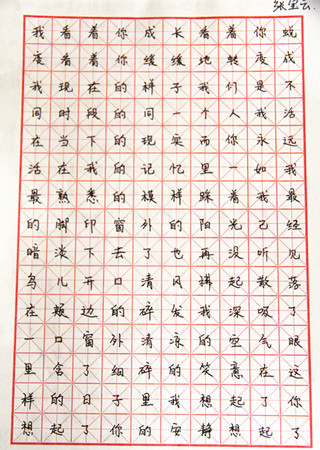 张里云
我看着着你成长看着你蜕
变看着你缓缓地转变成
我现在的样子我们是不
同时段的同一个人我活
在当下的现实而你永远
活在我的记忆里一如我
最熟悉的模样踩着我最
的脚印窗外的阳光已经
暗淡下去了也再没听见
鸟儿开口清风拂起散落
在颊边的碎发我深吸了
一口窗外清凉的空气眼
里含了细碎的笑意在这
样的日子里我想起了你
想起了你的安静想起了